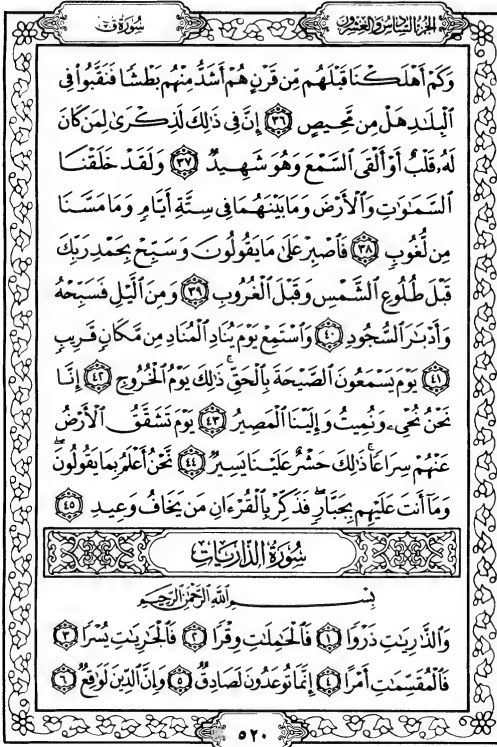 الجزء السادس والعشرون
سورة ق
وَكَمْ أَهْلَكْنَا قَبْلَهُم مِّن قَرْنٍ هُمْ أَشَدُّ مِنْهُم بَطْشًا فَنَقَّبُوا۟ فِى
ٱلْبِلَٰدِ هَلْ مِن مَّحِيصٍ ٣٦ إِنَّ فِى ذَٰلِكَ لَذِكْرَىٰ لِمَن كَانَ
لَهُۥ قَلْبٌ أَوْ أَلْقَى ٱلسَّمْعَ وَهُوَ شَهِيدٌ ٣٧ وَلَقَدْ خَلَقْنَا
ٱلسَّمَٰوَٰتِ وَٱلْأَرْضَ وَمَا بَيْنَهُمَا فِى سِتَّةِ أَيَّامٍ وَمَا مَسَّنَا
مِن لُّغُوبٍ ٣٨ فَٱصْبِرْ عَلَىٰ مَا يَقُولُونَ وَسَبِّحْ بِحَمْدِ رَبِّكَ
قَبْلَ طُلُوعِ ٱلشَّمْسِ وَقَبْلَ ٱلْغُرُوبِ ٣٩ وَمِنَ ٱلَّيْلِ فَسَبِّحْهُ
وَأَدْبَٰرَ ٱلسُّجُودِ ٤٠ وَٱسْتَمِعْ يَوْمَ يُنَادِ ٱلْمُنَادِ مِن مَّكَانٍ قَرِيبٍ
٤١ يَوْمَ يَسْمَعُونَ ٱلصَّيْحَةَ بِٱلْحَقِّ ۚ ذَٰلِكَ يَوْمُ ٱلْخُرُوجِ ٤٢ إِنَّا
نَحْنُ نُحْىِۦ وَنُمِيتُ وَإِلَيْنَا ٱلْمَصِيرُ ٤٣ يَوْمَ تَشَقَّقُ ٱلْأَرْضُ
عَنْهُمْ سِرَاعًا ۚ ذَٰلِكَ حَشْرٌ عَلَيْنَا يَسِيرٌ ٤٤ نَّحْنُ أَعْلَمُ بِمَا يَقُولُونَ ۖ
وَمَا أَنتَ عَلَيْهِم بِجَبَّارٍ ۖ فَذَكِّرْ بِٱلْقُرْءَانِ مَن يَخَافُ وَعِيدِ ٤٥
سورة الذاريات
بِسْمِ ٱللَّهِ ٱلرَّحْمَٰنِ ٱلرَّحِيمِ
وَٱلذَّٰرِيَٰتِ ذَرْوًا ١ فَٱلْحَٰمِلَٰتِ وِقْرًا ٢ فَٱلْجَٰرِيَٰتِ يُسْرًا ٣
فَٱلْمُقَسِّمَٰتِ أَمْرًا ٤ إِنَّمَا تُوعَدُونَ لَصَادِقٌ ٥ وَإِنَّ ٱلدِّينَ لَوَٰقِعٌ ٦
٥٢٠